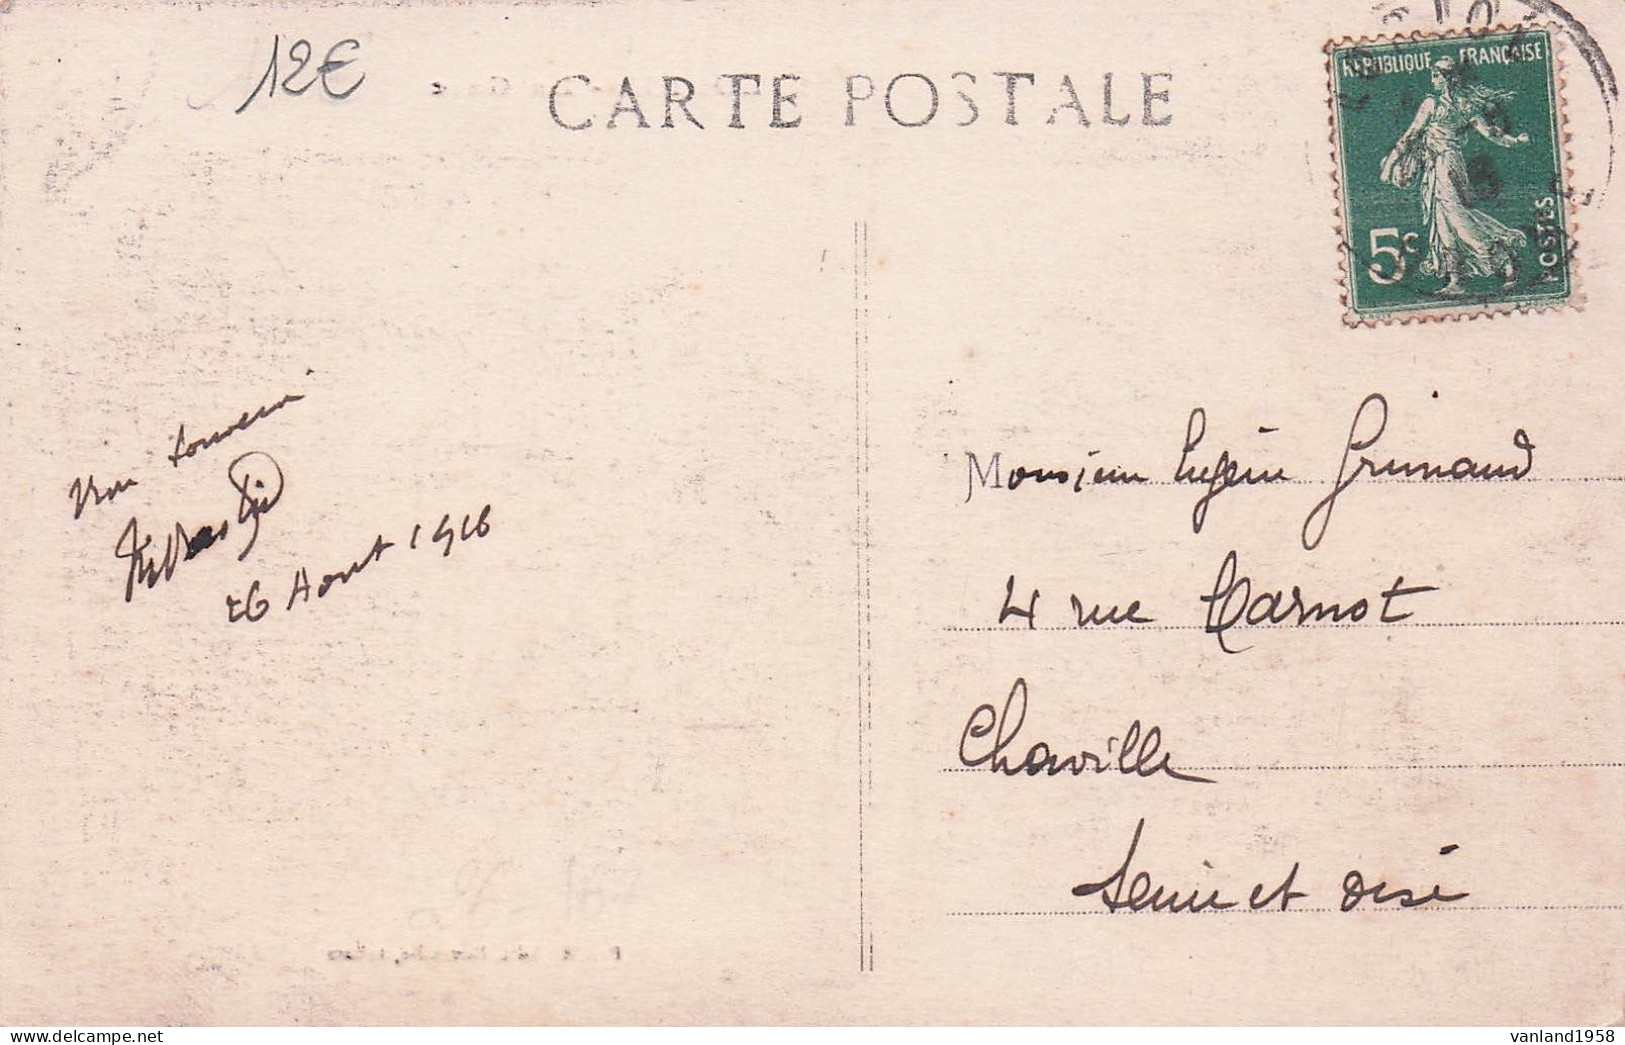 12€
CARTE POSTALE
REPUBLIQUE FRANÇAISE
5c
POSTES
souvenir
26 Aout 1916
Monsieur Eugène Grimaud
4 rue Carnot
Chaville
Seine et oise
vanland1958